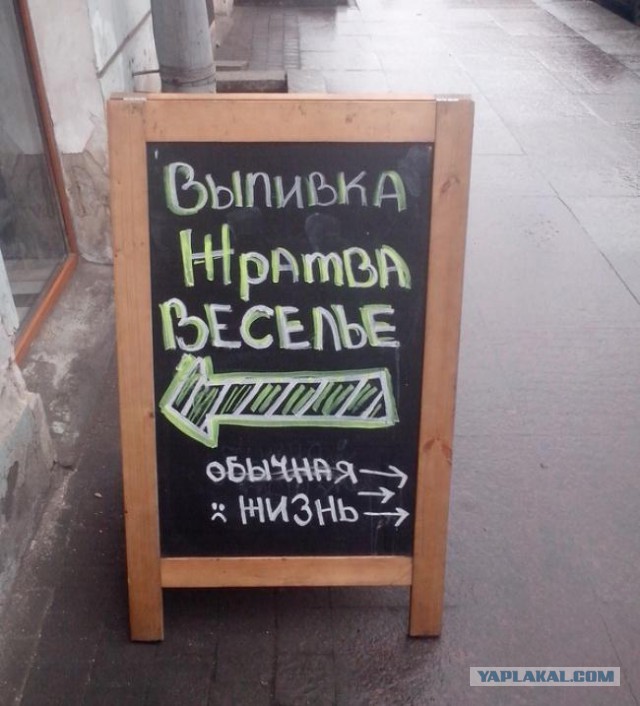 Выпивка
Жратва
ВЕСЕЛЬЕ
ОБЫЧНАЯ
:( ЖИЗНЬ
YAPLAKAL.COM